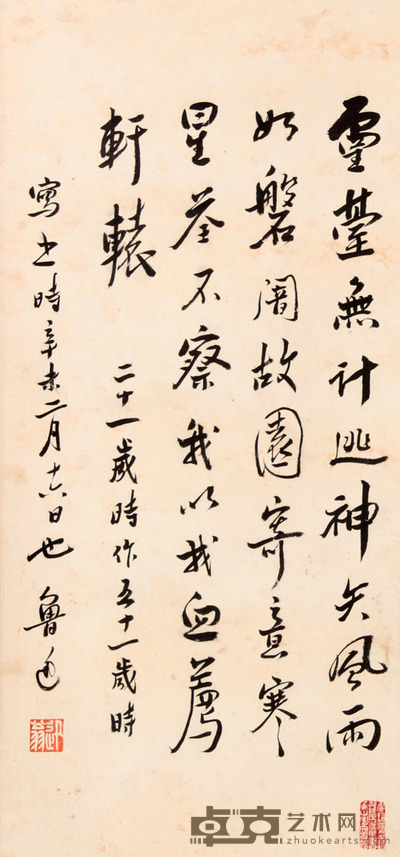 靈臺無計逃神矢風雨
如磐闇故園寄意寒
星荃不察我以我血薦
軒轅
二十一歲時作五十一歲時
寫之時辛未二月十六日也 魯迅
卓克艺术网
www.zhuokearts.com